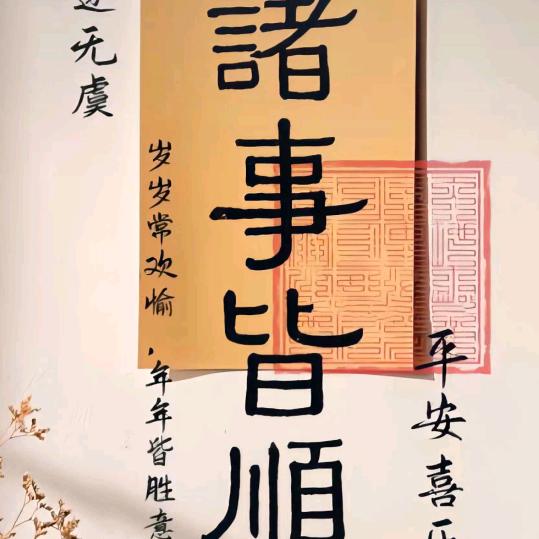 諸事皆順
平安喜乐
无虞
岁岁常欢愉，年年皆胜意